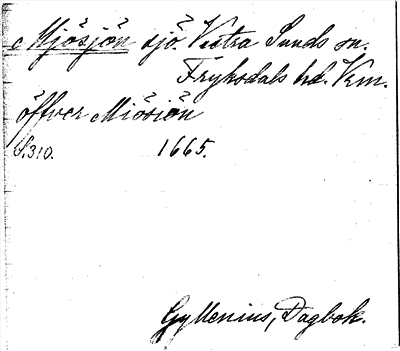 Mjösjön sjö. Vestra Sunds sn.
Fryksdals hd. Vrm.
öffver Miösiön
S. 310. 1665.
Gyllenius, Dagbok.